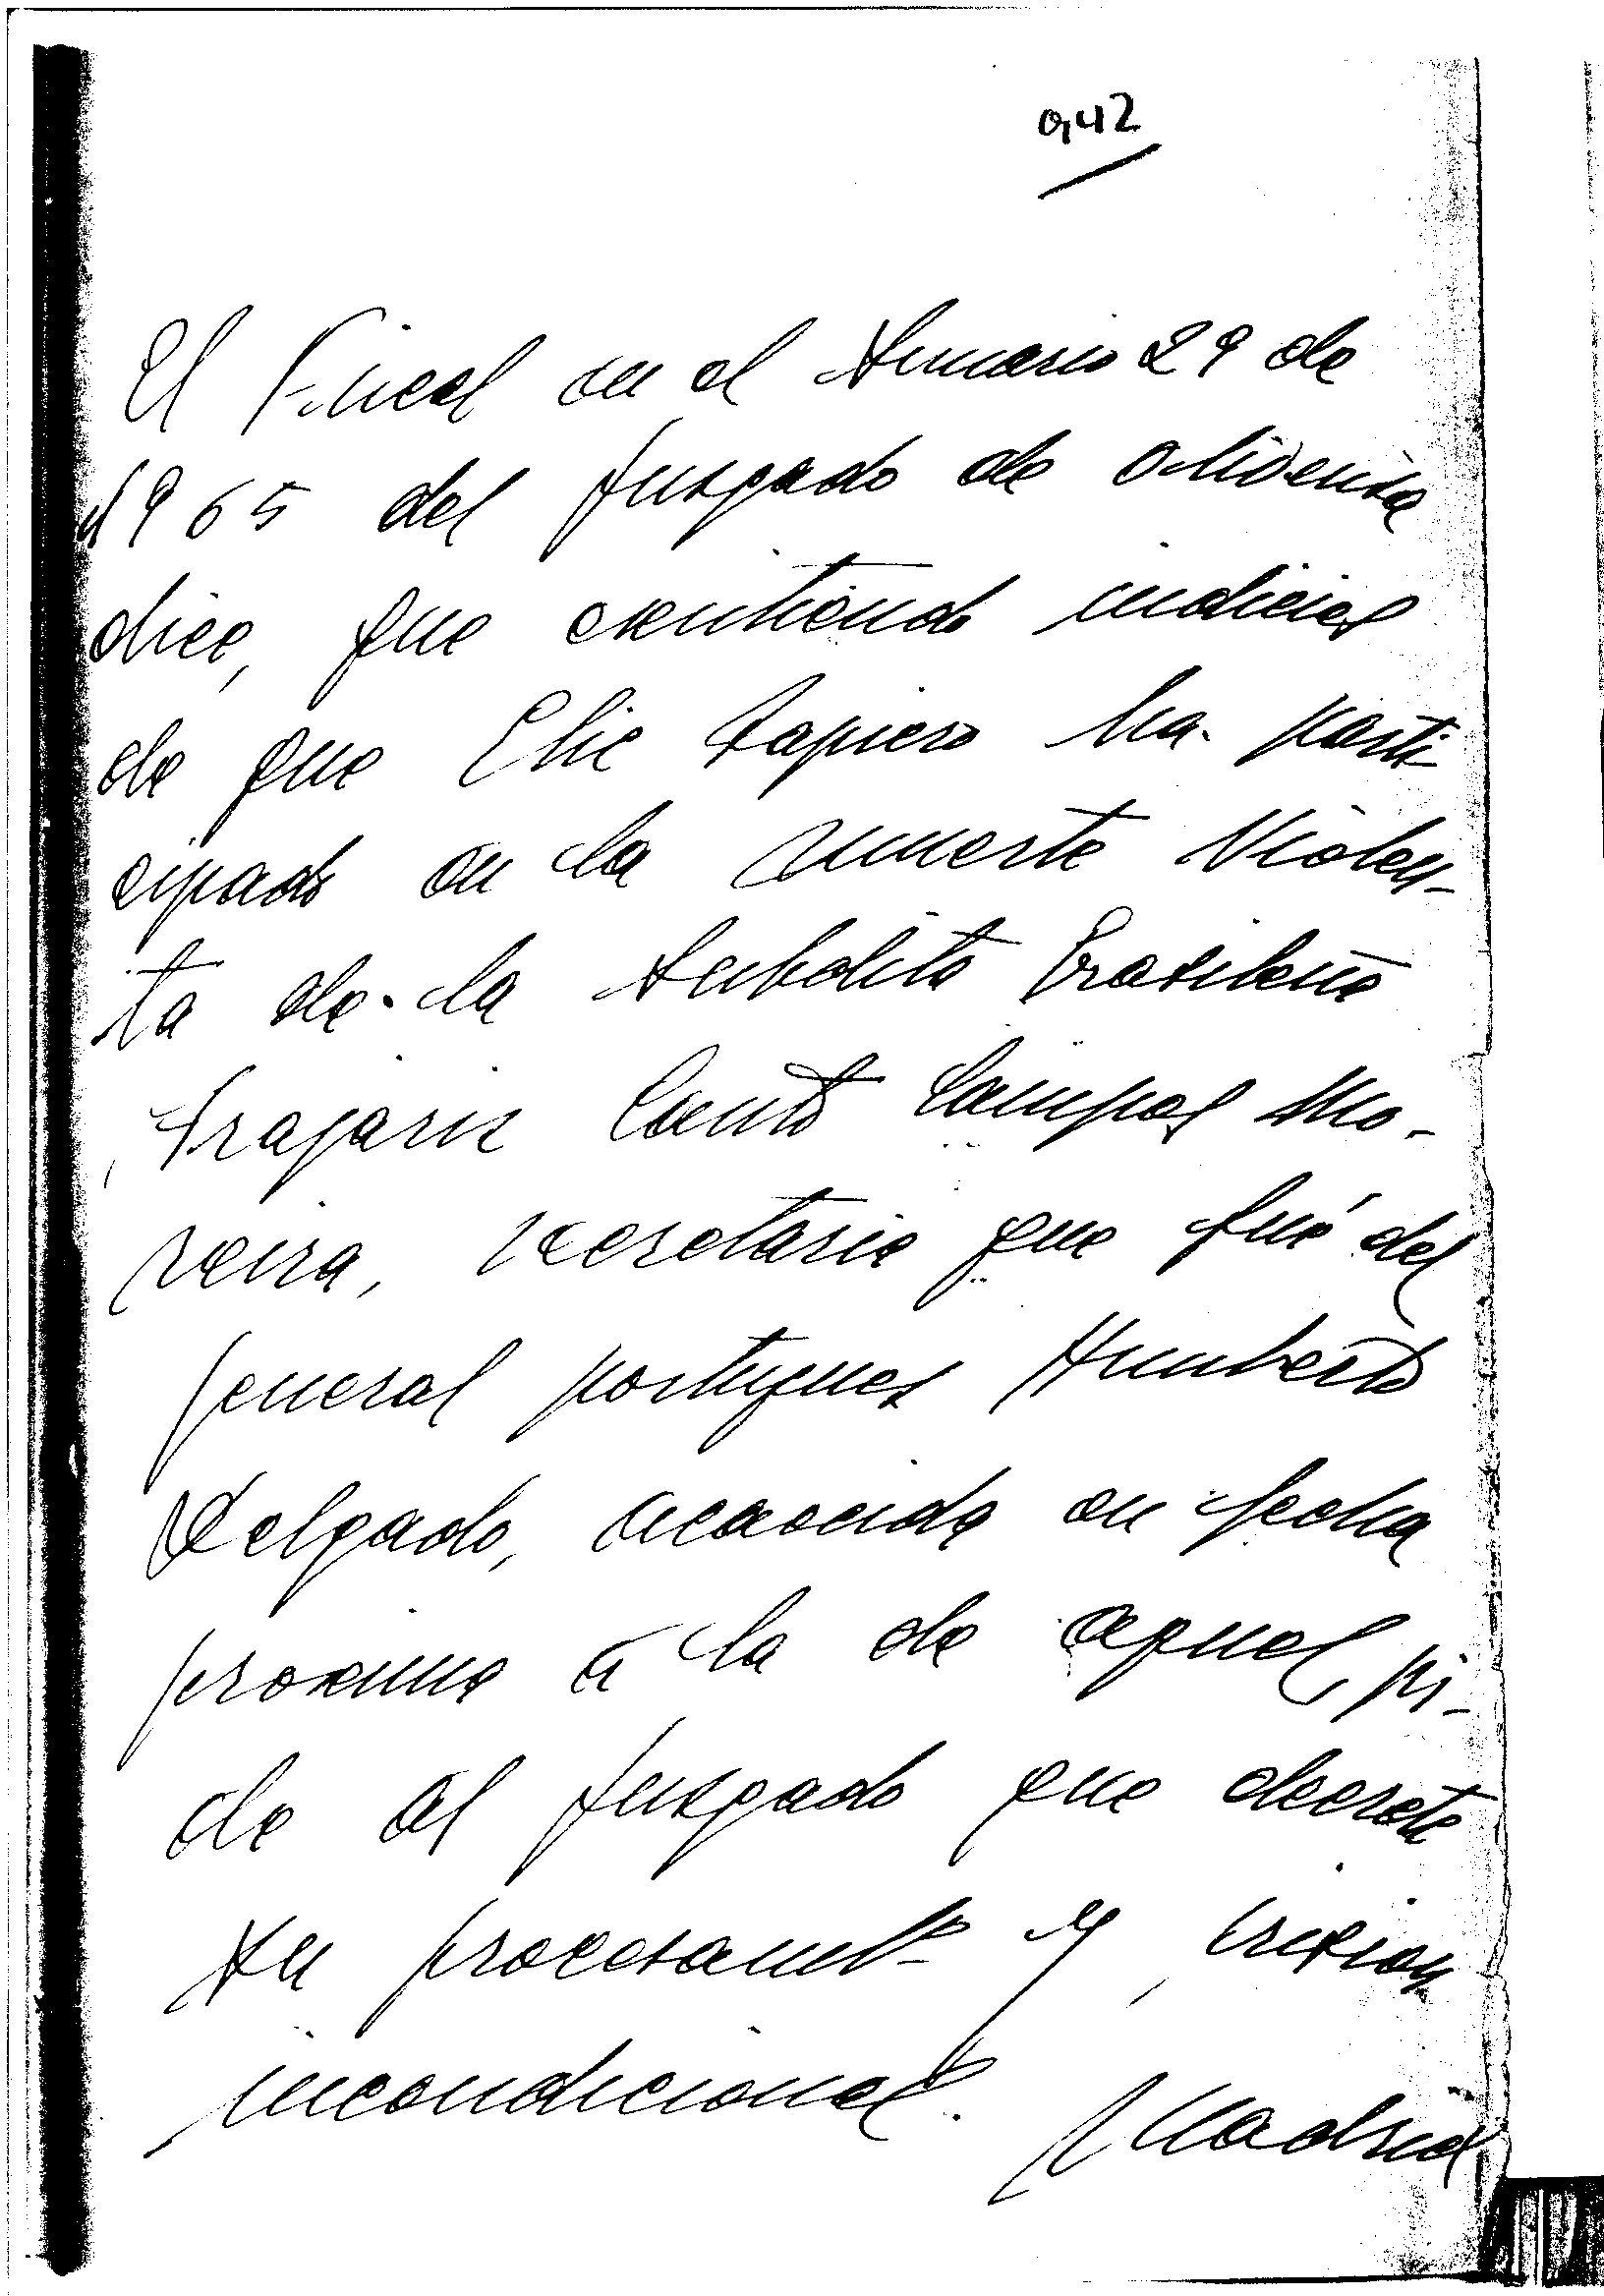 942
El Fiscal en el sumario 29 de
1965 del Juzgado de Olivenza
dice, que existiendo indicios
de que Elie Tapiero ha parti
cipado en la muerte violen-
ta de la subdita brasileña
Arajaris Canto Campos Mo-
reira, secretaria que fué del
general portugues Humberto
Delgado, acaecida en fecha
proxima a la de aquel, pi-
de al Juzgado que decrete
su procesamto y prision
incondicional. Madrid